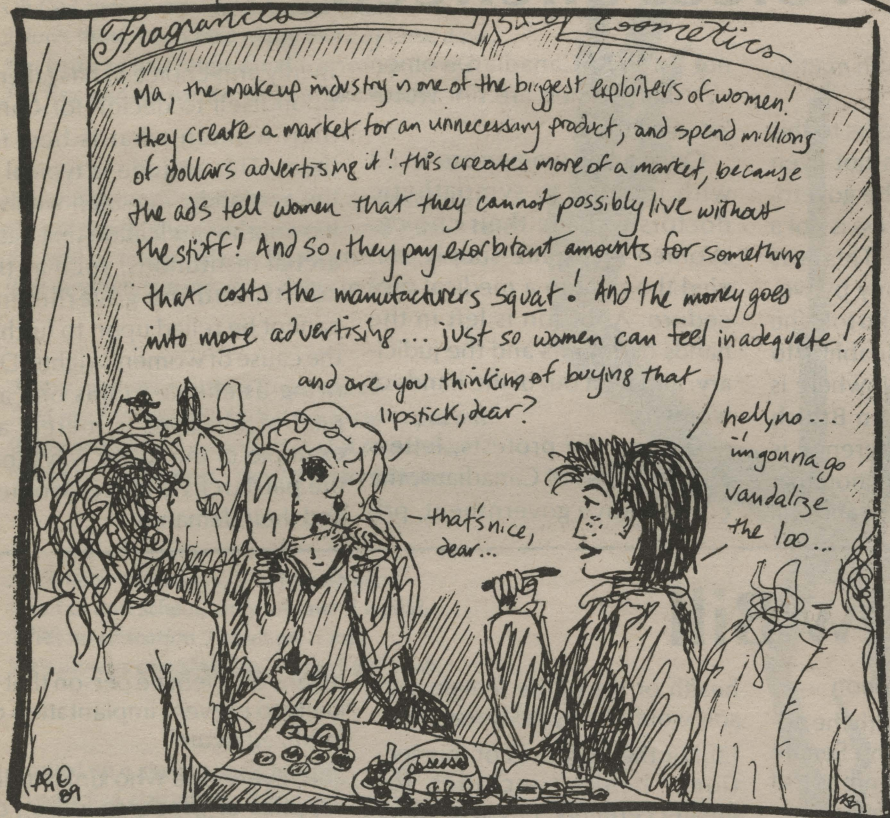 Fragrances
Cosmetics
Ma, the makeup industry is one of the biggest exploiters of women!
they create a market for an unnecessary product, and spend millions
of dollars advertising it! this creates more of a market, because
the ads tell women that they cannot possibly live without
the stuff! And so, they pay exorbitant amounts for something
that costs the manufacturers squat! And the money goes
into more advertising... just so women can feel inadequate!
and are you thinking of buying that
lipstick, dear?
hell, no...
i'm gonna go
vandalize
the loo...
- that's nice,
dear...
89